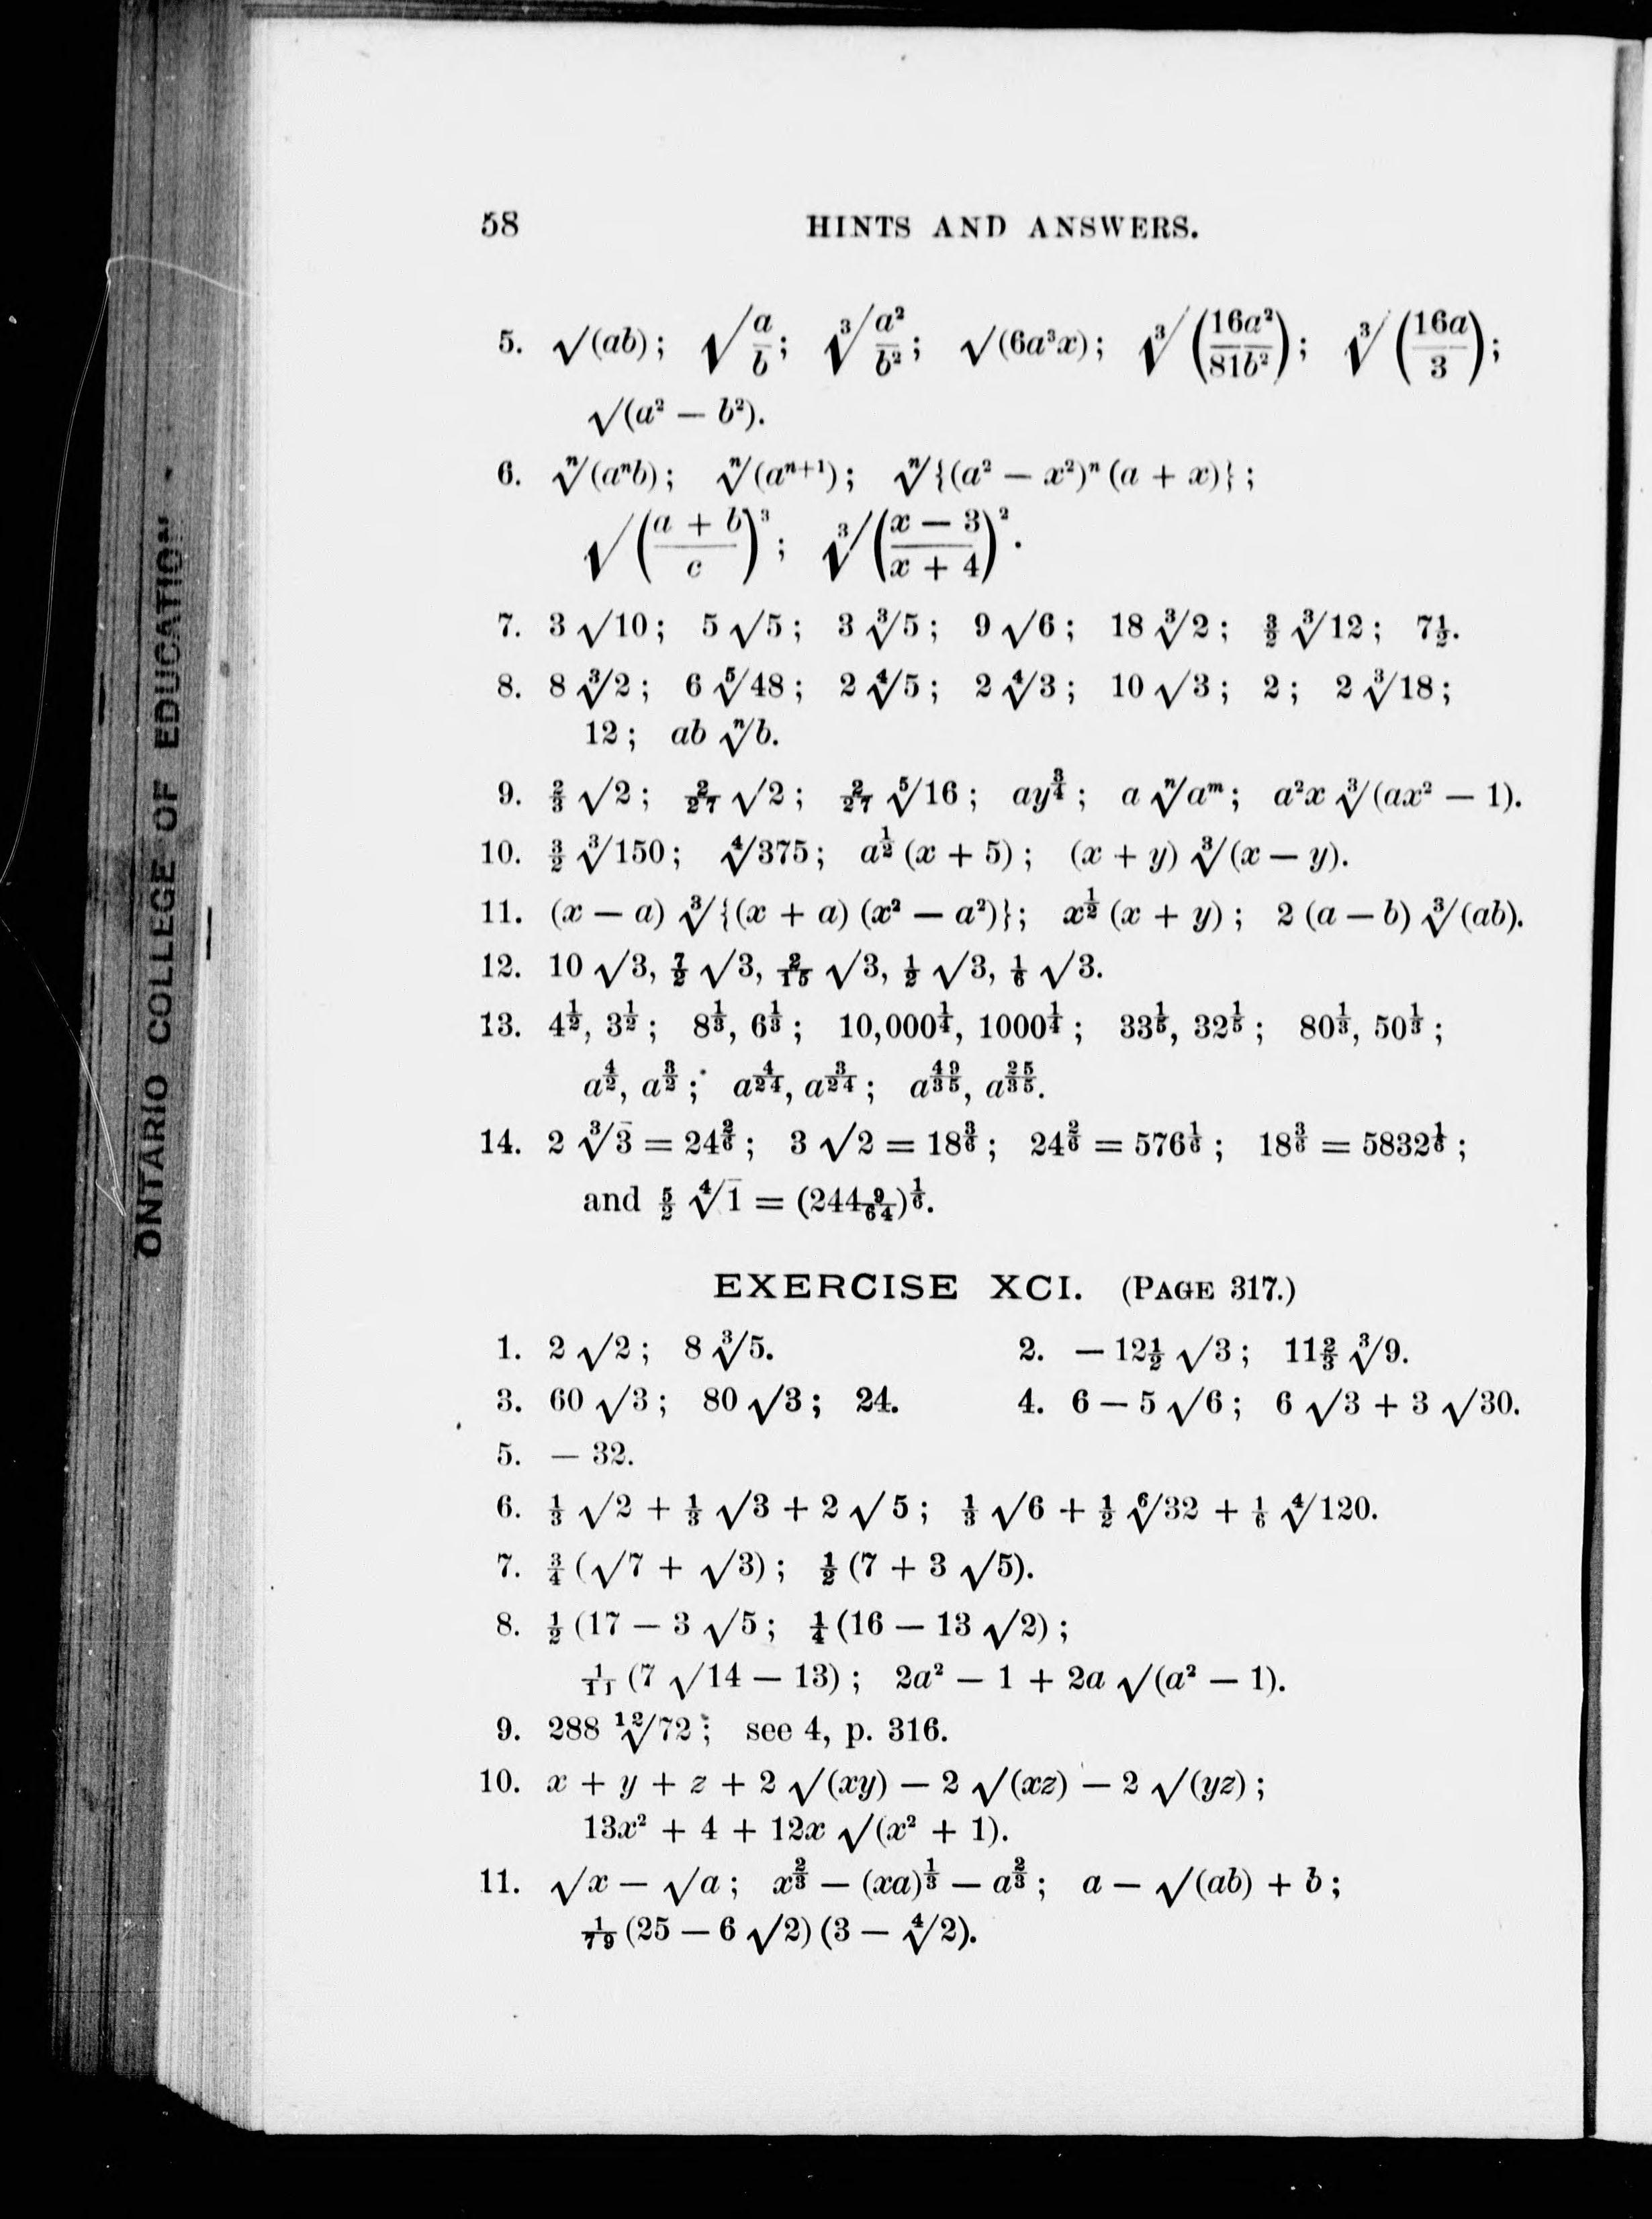 58 HINTS AND ANSWERS.
5. √(ab); √(a/b); ∛(a²/b²); √(6a³x); ∛(16a²/81b²); ∛(16a/3);
√(a² − b²).
6. ⁿ√(aⁿb); ⁿ√(aⁿ⁺¹); ⁿ√{(a² − x²)ⁿ (a + x)};
√((a + b)/c)³; ∛((x − 3)/(x + 4))².
7. 3 √10; 5 √5; 3 ∛5; 9 √6; 18 ∛2; 3/2 ∛12; 7½.
8. 8 ∛2; 6 ⁵√48; 2 ∜5; 2 ∜3; 10 √3; 2; 2 ∛18;
12; ab ⁿ√b.
9. 2/3 √2; 2/27 √2; 2/27 ⁵√16; ay^(3/4); a ⁿ√aᵐ; a²x ∛(ax² − 1).
10. 3/2 ∛150; ∜375; a^(1/2) (x + 5); (x + y) ∛(x − y).
11. (x − a) ∛{(x + a) (x² − a²)}; x^(1/2) (x + y); 2 (a − b) ∛(ab).
12. 10 √3, 7/2 √3, 2/15 √3, 1/2 √3, 1/6 √3.
13. 4^(1/2), 3^(1/2); 8^(1/3), 6^(1/3); 10,000^(1/4), 1000^(1/4); 33^(1/5), 32^(1/5); 80^(1/3), 50^(1/3);
a^(4/2), a^(3/2); a^(4/24), a^(3/24); a^(49/35), a^(25/35).
14. 2 ∛3 = 24^(2/6); 3 √2 = 18^(3/6); 24^(2/6) = 576^(1/6); 18^(3/6) = 5832^(1/6);
and 5/2 ∜1 = (244 9/64)^(1/6).
EXERCISE XCI. (PAGE 317.)
1. 2 √2; 8 ∛5. 2. − 12½ √3; 11⅔ ∛9.
3. 60 √3; 80 √3; 24. 4. 6 − 5 √6; 6 √3 + 3 √30.
5. − 32.
6. 1/3 √2 + 1/3 √3 + 2 √5; 1/3 √6 + 1/2 ⁶√32 + 1/6 ∜120.
7. 3/4 (√7 + √3); 1/2 (7 + 3 √5).
8. 1/2 (17 − 3 √5; 1/4 (16 − 13 √2);
1/11 (7 √14 − 13); 2a² − 1 + 2a √(a² − 1).
9. 288 ¹²√72; see 4, p. 316.
10. x + y + z + 2 √(xy) − 2 √(xz) − 2 √(yz);
13x² + 4 + 12x √(x² + 1).
11. √x − √a; x^(2/3) − (xa)^(1/3) − a^(2/3); a − √(ab) + b;
1/79 (25 − 6 √2) (3 − ∜2).
ONTARIO COLLEGE OF EDUCATION